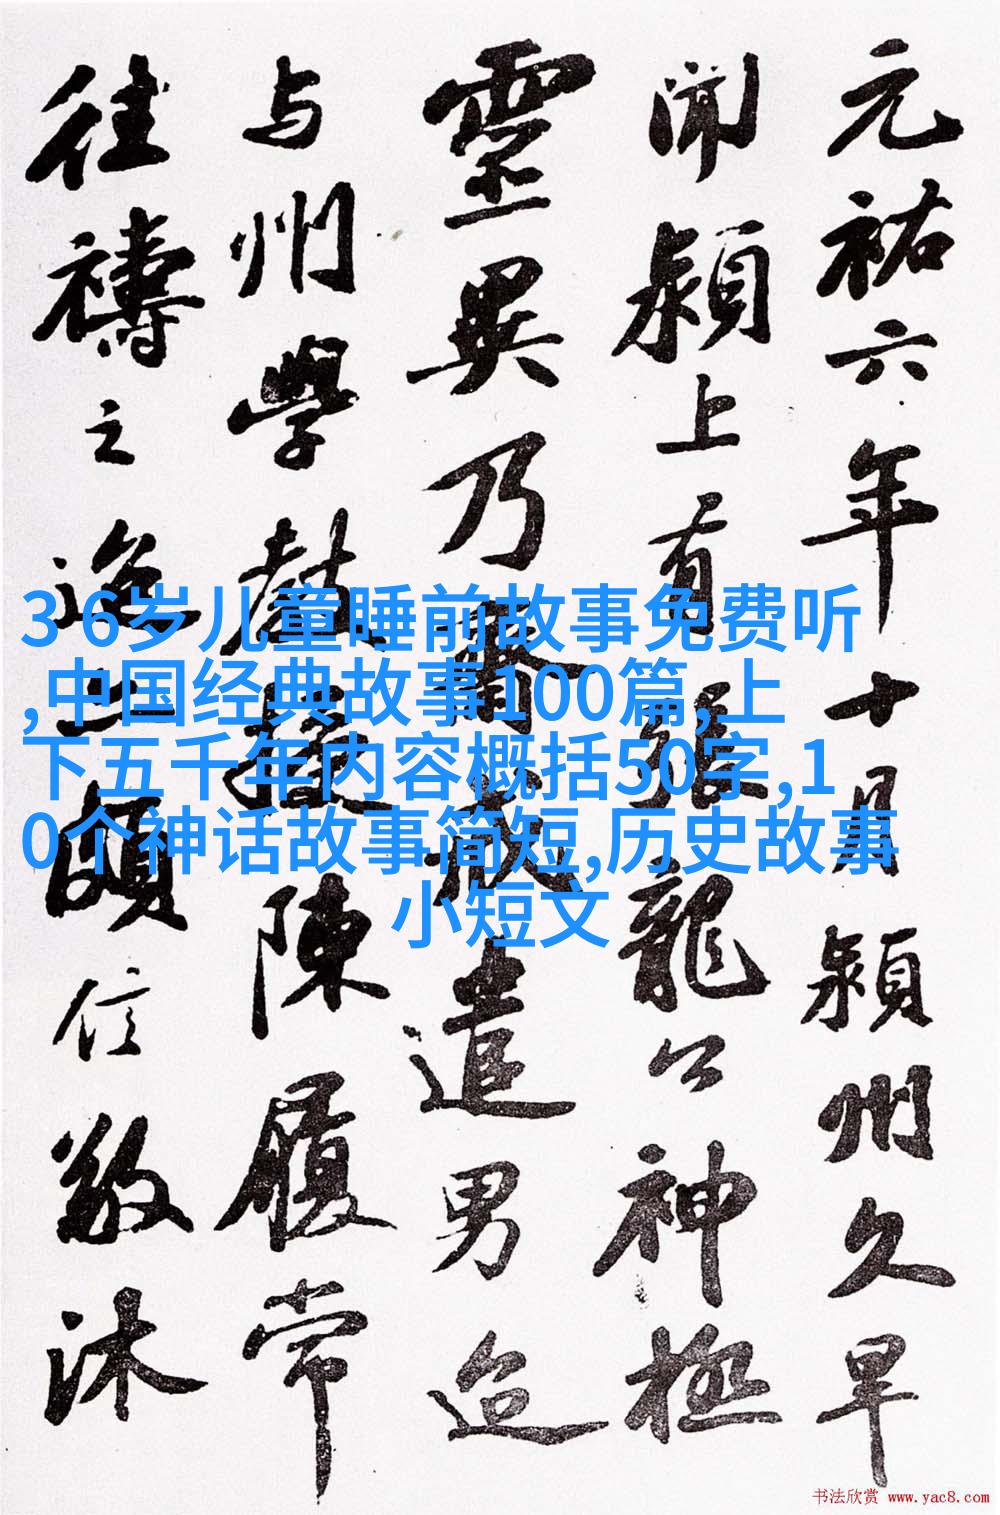 元祐六年十月潁州久旱
聞潁上有張龍公神極
靈異乃齋戒遣男迨
与州學教授陳履常
往禱之迨亦頗信敬沐
3 6岁儿童睡前故事免费听
,中国经典故事100篇,上
下五千年内容概括50字,1
0个神话故事简短,历史故事
小短文
书法欣赏 www.yac8.com